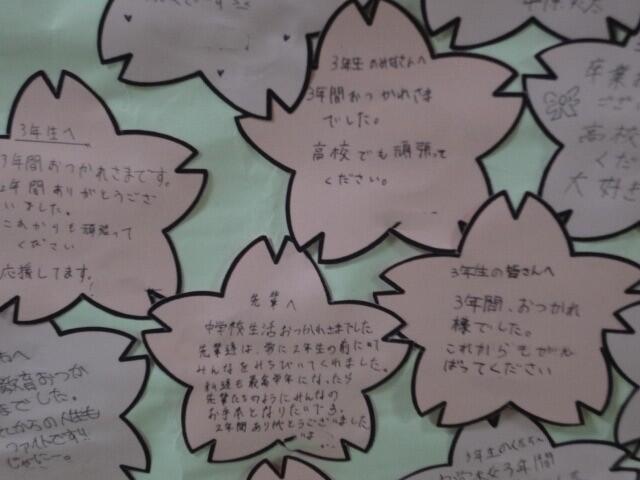 3年生のみなさんへ
3年間おつかれさま
でした。
高校でも頑張って
ください。
3年生へ
3年間おつかれさまです。
2年間ありがとうござ
いました。
これからも頑張って
ください
応援してます。
先輩へ
中学校生活おつかれさまでした
先輩達は、常に2年生の前に
みんなをみちびいてくれました。
私達も最高学年になったら
先輩たちのようにみんなの
お手本となりたいです。
2年間ありがとうございました
3年生の皆さんへ
3年間、おつかれ
様でした。
これからもがん
ばってください
卒業
ござ
高校
くだ
大好き
へ
教育おつか
までした。
れからの人生も
ファイトです!!
じゃにー。
3年生のみなさんへ
3年間